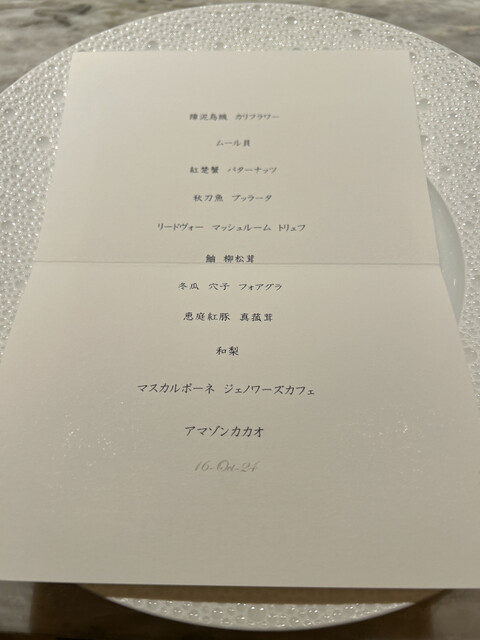 カリフラワー
ムール貝
紅楚蟹 バターナッツ
秋刀魚 ブッラータ
リードヴォー マッシュルーム トリュフ
鰤 柳松茸
冬瓜 穴子 フォアグラ
恵庭紅豚 真菰茸
和梨
マスカルポーネ ジェノワーズカフェ
アマゾンカカオ
16-Oct-24